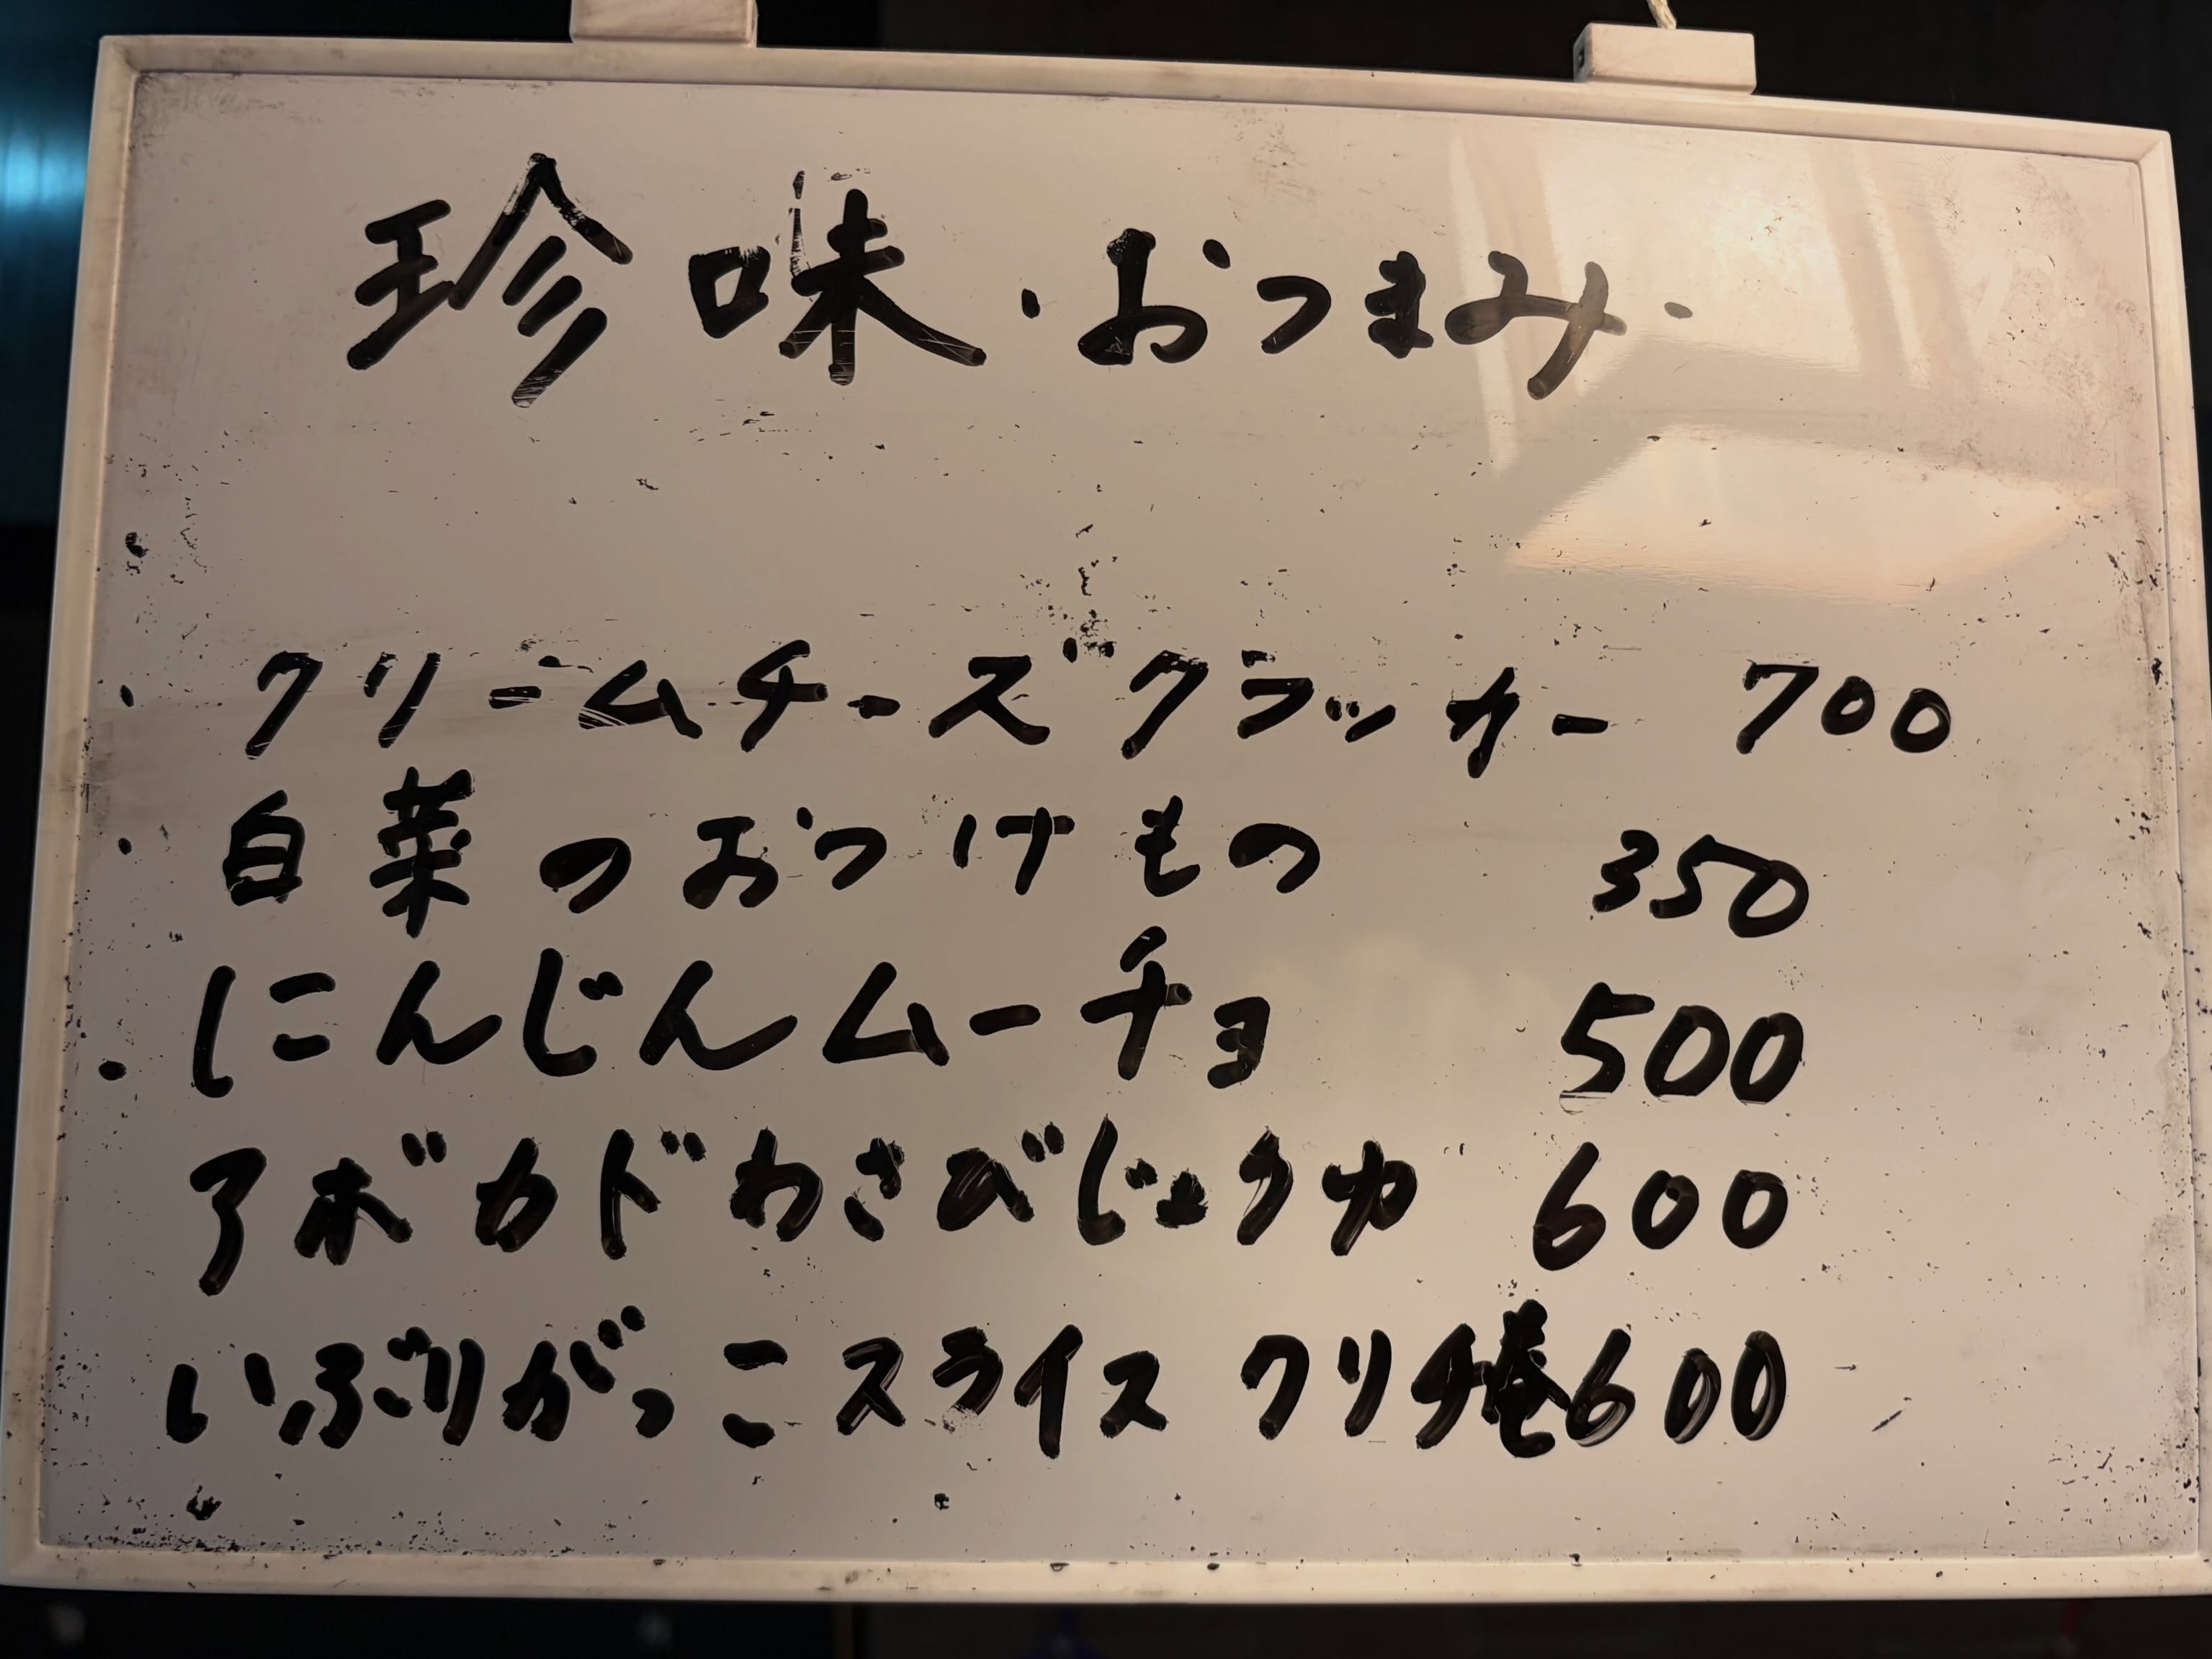 珍味・おつまみ・
・クリームチーズクラッカー 700
・白菜のおつけもの 350
・にんじんムーチョ 500
アボカドわさびじょうゆ 600
いぶりがっこスライス クリチ巻 600